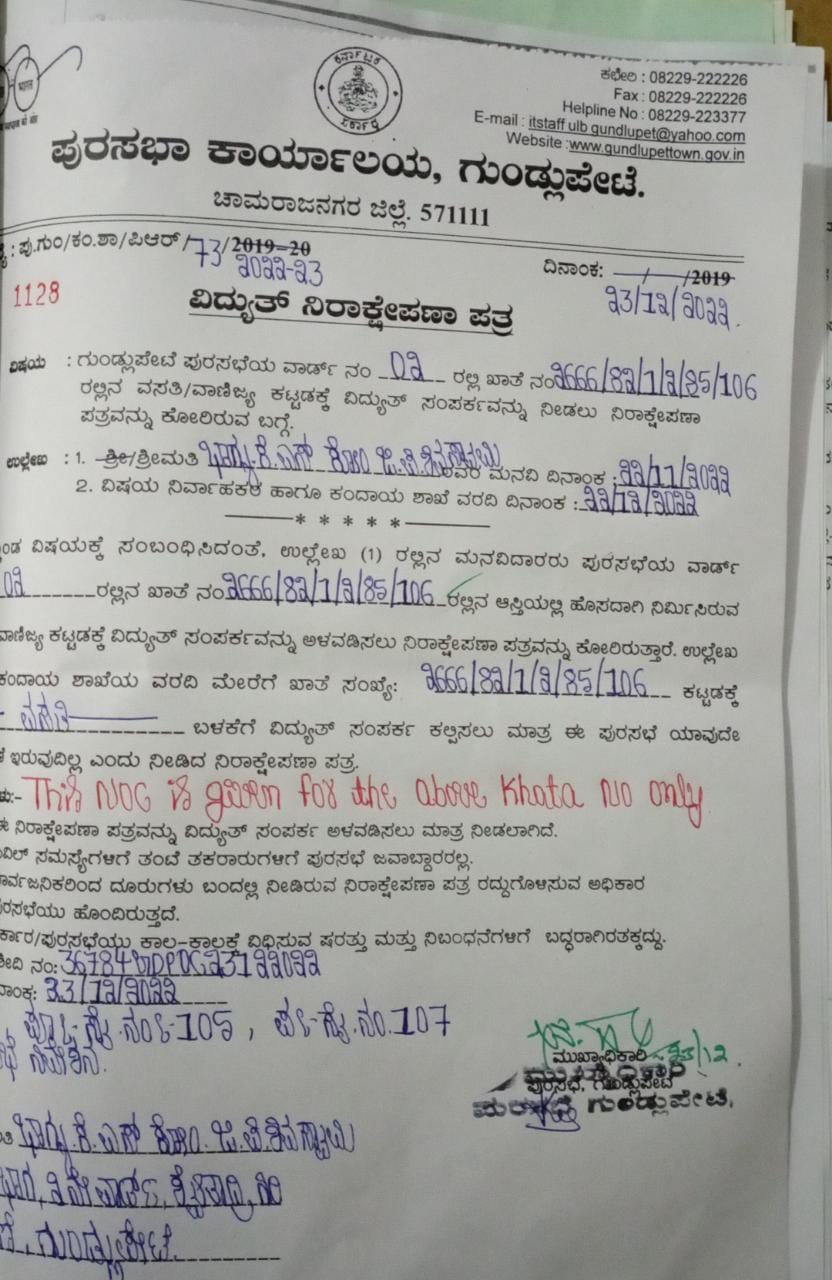 ಕರ್ನಾಟಕ ಸರ್ಕಾರ
ಕಛೇರಿ : 08229-222226
Fax : 08229-222226
Helpline No : 08229-223377
E-mail : itstaff ulb gundlupet@yahoo.com
Website :www.gundlupettown.gov.in
ಪುರಸಭಾ ಕಾರ್ಯಾಲಯ, ಗುಂಡ್ಲುಪೇಟೆ.
ಚಾಮರಾಜನಗರ ಜಿಲ್ಲೆ. 571111
: ಪು.ಗುಂ/ಕಂ.ಶಾ/ಪಿಆರ್/73/2019-20
2022-23
ದಿನಾಂಕ: / /2019
23/12/2022.
1128
ವಿದ್ಯುತ್ ನಿರಾಕ್ಷೇಪಣಾ ಪತ್ರ
ವಿಷಯ : ಗುಂಡ್ಲುಪೇಟೆ ಪುರಸಭೆಯ ವಾರ್ಡ್ ನಂ 02 ರಲ್ಲಿ ಖಾತೆ ನಂ 2666/82/1/2/85/106
ರಲ್ಲಿನ ವಸತಿ/ವಾಣಿಜ್ಯ ಕಟ್ಟಡಕ್ಕೆ ವಿದ್ಯುತ್ ಸಂಪರ್ಕವನ್ನು ನೀಡಲು ನಿರಾಕ್ಷೇಪಣಾ
ಪತ್ರವನ್ನು ಕೋರಿರುವ ಬಗ್ಗೆ.
ಉಲ್ಲೇಖ : 1. ಶ್ರೀ/ಶ್ರೀಮತಿ ಭಾಗ್ಯ.ಕೆ.ಎಸ್ ಕೋಂ ಜಿ.ಪಿ.ಶಿವಸ್ವಾಮಿ ರವರ ಮನವಿ ದಿನಾಂಕ : 22/11/2022
2. ವಿಷಯ ನಿರ್ವಾಹಕರ ಹಾಗೂ ಕಂದಾಯ ಶಾಖೆ ವರದಿ ದಿನಾಂಕ : 22/12/2022
* * * * *
ವಿಷಯಕ್ಕೆ ಸಂಬಂಧಿಸಿದಂತೆ, ಉಲ್ಲೇಖ (1) ರಲ್ಲಿನ ಮನವಿದಾರರು ಪುರಸಭೆಯ ವಾರ್ಡ್
02 ರಲ್ಲಿನ ಖಾತೆ ನಂ 2666/82/1/2/85/106 ರಲ್ಲಿನ ಆಸ್ತಿಯಲ್ಲಿ ಹೊಸದಾಗಿ ನಿರ್ಮಿಸಿರುವ
ವಾಣಿಜ್ಯ ಕಟ್ಟಡಕ್ಕೆ ವಿದ್ಯುತ್ ಸಂಪರ್ಕವನ್ನು ಅಳವಡಿಸಲು ನಿರಾಕ್ಷೇಪಣಾ ಪತ್ರವನ್ನು ಕೋರಿರುತ್ತಾರೆ. ಉಲ್ಲೇಖ
ಕಂದಾಯ ಶಾಖೆಯ ವರದಿ ಮೇರೆಗೆ ಖಾತೆ ಸಂಖ್ಯೆ: 2666/82/1/2/85/106 ಕಟ್ಟಡಕ್ಕೆ
ವಸತಿ ಬಳಕೆಗೆ ವಿದ್ಯುತ್ ಸಂಪರ್ಕ ಕಲ್ಪಿಸಲು ಮಾತ್ರ ಈ ಪುರಸಭೆ ಯಾವುದೇ
ಇರುವುದಿಲ್ಲ ಎಂದು ನೀಡಿದ ನಿರಾಕ್ಷೇಪಣಾ ಪತ್ರ.
This NOC is given for the above Khata No only.
ಈ ನಿರಾಕ್ಷೇಪಣಾ ಪತ್ರವನ್ನು ವಿದ್ಯುತ್ ಸಂಪರ್ಕ ಅಳವಡಿಸಲು ಮಾತ್ರ ನೀಡಲಾಗಿದೆ.
ವಿಲ್ ಸಮಸ್ಯೆಗಳಿಗೆ ತಂಟೆ ತಕರಾರುಗಳಿಗೆ ಪುರಸಭೆ ಜವಾಬ್ದಾರರಲ್ಲ.
ರ್ವಜನಿಕರಿಂದ ದೂರುಗಳು ಬಂದಲ್ಲಿ ನೀಡಿರುವ ನಿರಾಕ್ಷೇಪಣಾ ಪತ್ರ ರದ್ದುಗೊಳಿಸುವ ಅಧಿಕಾರ
ರಸಭೆಯು ಹೊಂದಿರುತ್ತದೆ.
ರ್ಕಾರ/ಪುರಸಭೆಯು ಕಾಲ-ಕಾಲಕ್ಕೆ ವಿಧಿಸುವ ಷರತ್ತು ಮತ್ತು ನಿಬಂಧನೆಗಳಿಗೆ ಬದ್ಧರಾಗಿರತಕ್ಕದ್ದು.
ಶೀದಿ ನಂ: 36784
ನಾಂಕ: 23/12/2022
105, 107
23/12
ಮುಖ್ಯಾಧಿಕಾರಿ
ಪುರಸಭೆ, ಗುಂಡ್ಲುಪೇಟೆ
ಮುಖ್ಯಾಧಿಕಾರಿ
ಪುರಸಭೆ ಗುಂಡ್ಲುಪೇಟೆ.
ಭಾಗ್ಯ.ಕೆ.ಎಸ್ ಕೋಂ. ಜಿ.ಪಿ.ಶಿವಸ್ವಾಮಿ
ಗುಂಡ್ಲುಪೇಟೆ